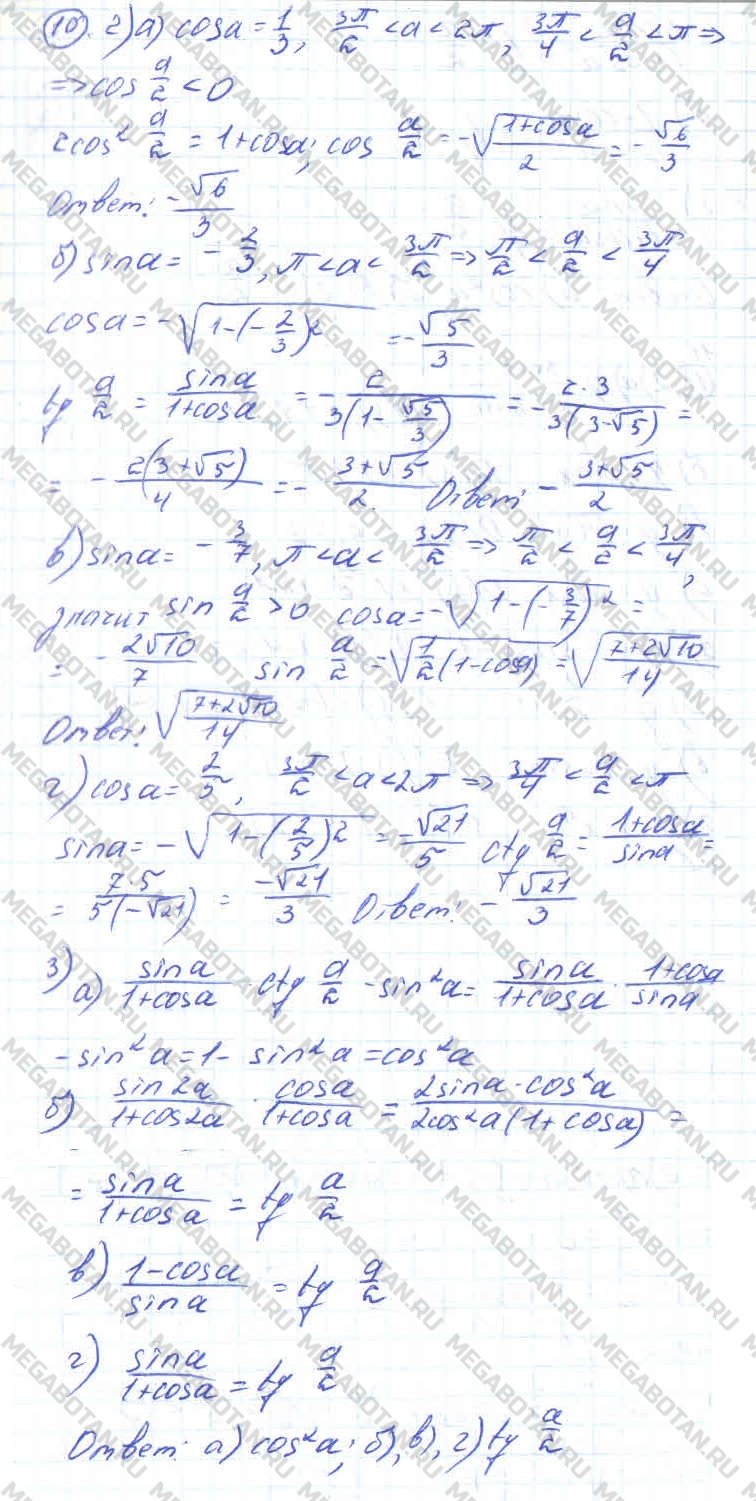 10. 2) а) cosa = 1/3, 3π/2 < a < 2π, 3π/4 < a/2 < π =>
=> cos a/2 < 0
2cos² a/2 = 1+cosa; cos a/2 = -√((1+cosa)/2) = -√6/3
Ответ: -√6/3
б) sina = -2/3, π < a < 3π/2 => π/2 < a/2 < 3π/4
cosa = -√(1-(-2/3)²) = -√5/3
tg a/2 = sina/(1+cosa) = -2/(3(1-√5/3)) = -2·3/(3(3-√5)) =
= -2(3+√5)/4 = -(3+√5)/2 Ответ: -(3+√5)/2
в) sina = -3/7, π < a < 3π/2 => π/2 < a/2 < 3π/4,
значит sin a/2 > 0 cosa = -√(1-(-3/7)²) =
= -2√10/7 sin a/2 = √(1/2(1-cosa)) = √((7+2√10)/14)
Ответ: √((7+2√10)/14)
г) cosa = 2/5, 3π/2 < a < 2π => 3π/4 < a/2 < π
sina = -√(1-(2/5)²) = -√21/5 ctg a/2 = (1+cosa)/sina =
= 7·5/(5(-√21)) = -√21/3 Ответ: -√21/3
3) а) sina/(1+cosa) · ctg a/2 - sin²a = sina/(1+cosa) · (1+cosa)/sina
- sin²a = 1 - sin²a = cos²a
б) sin2a/(1+cos2a) · cosa/(1+cosa) = 2sina·cos²a/(2cos²a(1+cosa)) =
= sina/(1+cosa) = tg a/2
в) (1-cosa)/sina = tg a/2
г) sina/(1+cosa) = tg a/2
Ответ: а) cos²a; б), в), г) tg a/2
MEGABOTAN.RU